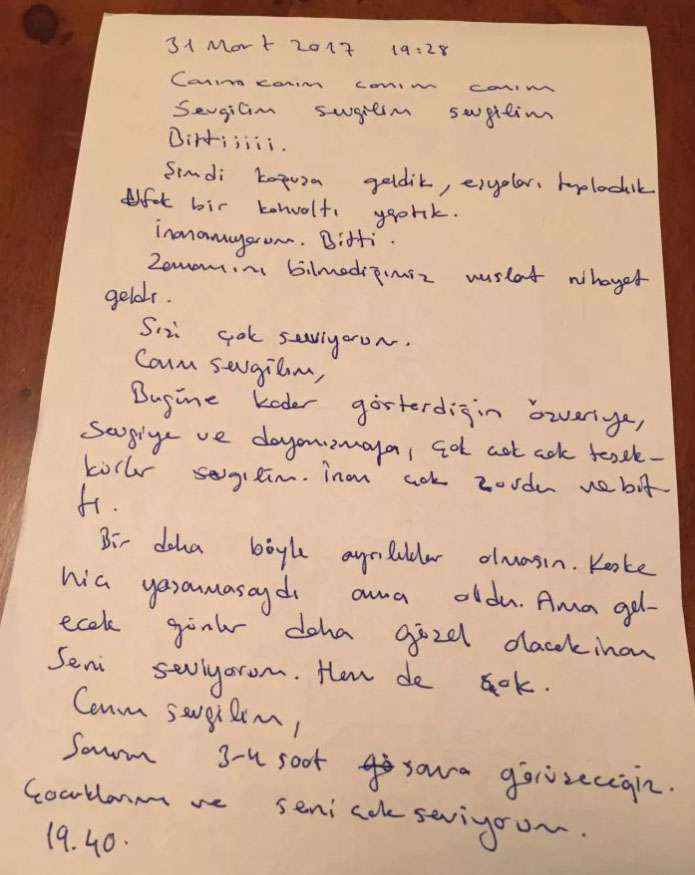 31 Mart 2017 19:28
Canım karım canım canım
Sevgilim sevgilim sevgilim
Bittiiiii.
Şimdi koğuşa geldik, eşyaları topladık
Ufak bir kahvaltı yaptık.
İnanamıyorum. Bitti.
Zamanını bilmediğimiz vuslat nihayet
geldi.
Sizi çok seviyorum.
Canım sevgilim,
Bugüne kadar gösterdiğin özveriye,
sevgiye ve dayanışmaya, çok çok çok teşek-
kürler sevgilim. İnan çok zordu ve bit
ti.
Bir daha böyle ayrılıklar olmasın. Keşke
hiç yaşanmasaydı ama oldu. Ama gel-
ecek günler daha güzel olacak inan
Seni seviyorum. Hem de çok.
Canım sevgilim,
Sanırım 3-4 saat sonra görüşeceğiz.
Çocuklarım ve seni çok seviyorum.
19.40.